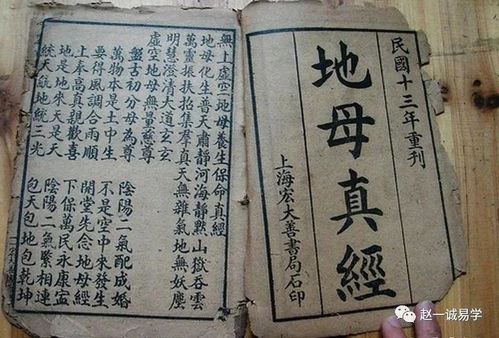 民國十三年重刊
地母真經
上海宏大善書局石印
無上虛空地母養生保命真經
地母化生普天肅靜河海靜默山嶽吞雲
萬靈振扶抬集羣真天無雜氣地無妖塵
明慧澄清大道玄玄
虛空地母無量慈尊
盤古初分母為尊 陰陽二氣配成婚
萬物本是土中生 不是空中來發生
要得風調合雨順 開堂先念地母經
上奉高真親歡喜 下保萬民永康寧
地是地來天是天 陰陽二氣緊相連
統天統地統三光 包天包地包乾坤
赵一诚易学